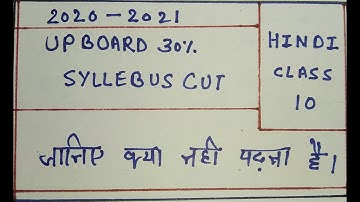 2020-2021
UP BOARD 30%
SYLLEBUS CUT
HINDI
CLASS
10
जानिए क्या नही पढ़ना है।